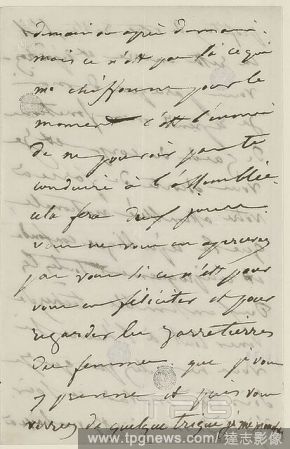 demain ou après demain.
mais ce n'est pas là ce qui
me chiffonne pour le
moment c'est l'ennui
de ne pouvoir pas te
conduire à l'assemblée
cela fera deux jours
vous ne vous en apercevez
pas vous si ce n'est pour
vous en féliciter et pour
regarder les jarretières
des femmes. que je vous
y prenne et puis vous
verrez de quelque trique je me
TPG
www.tpgnews.com/達志影像